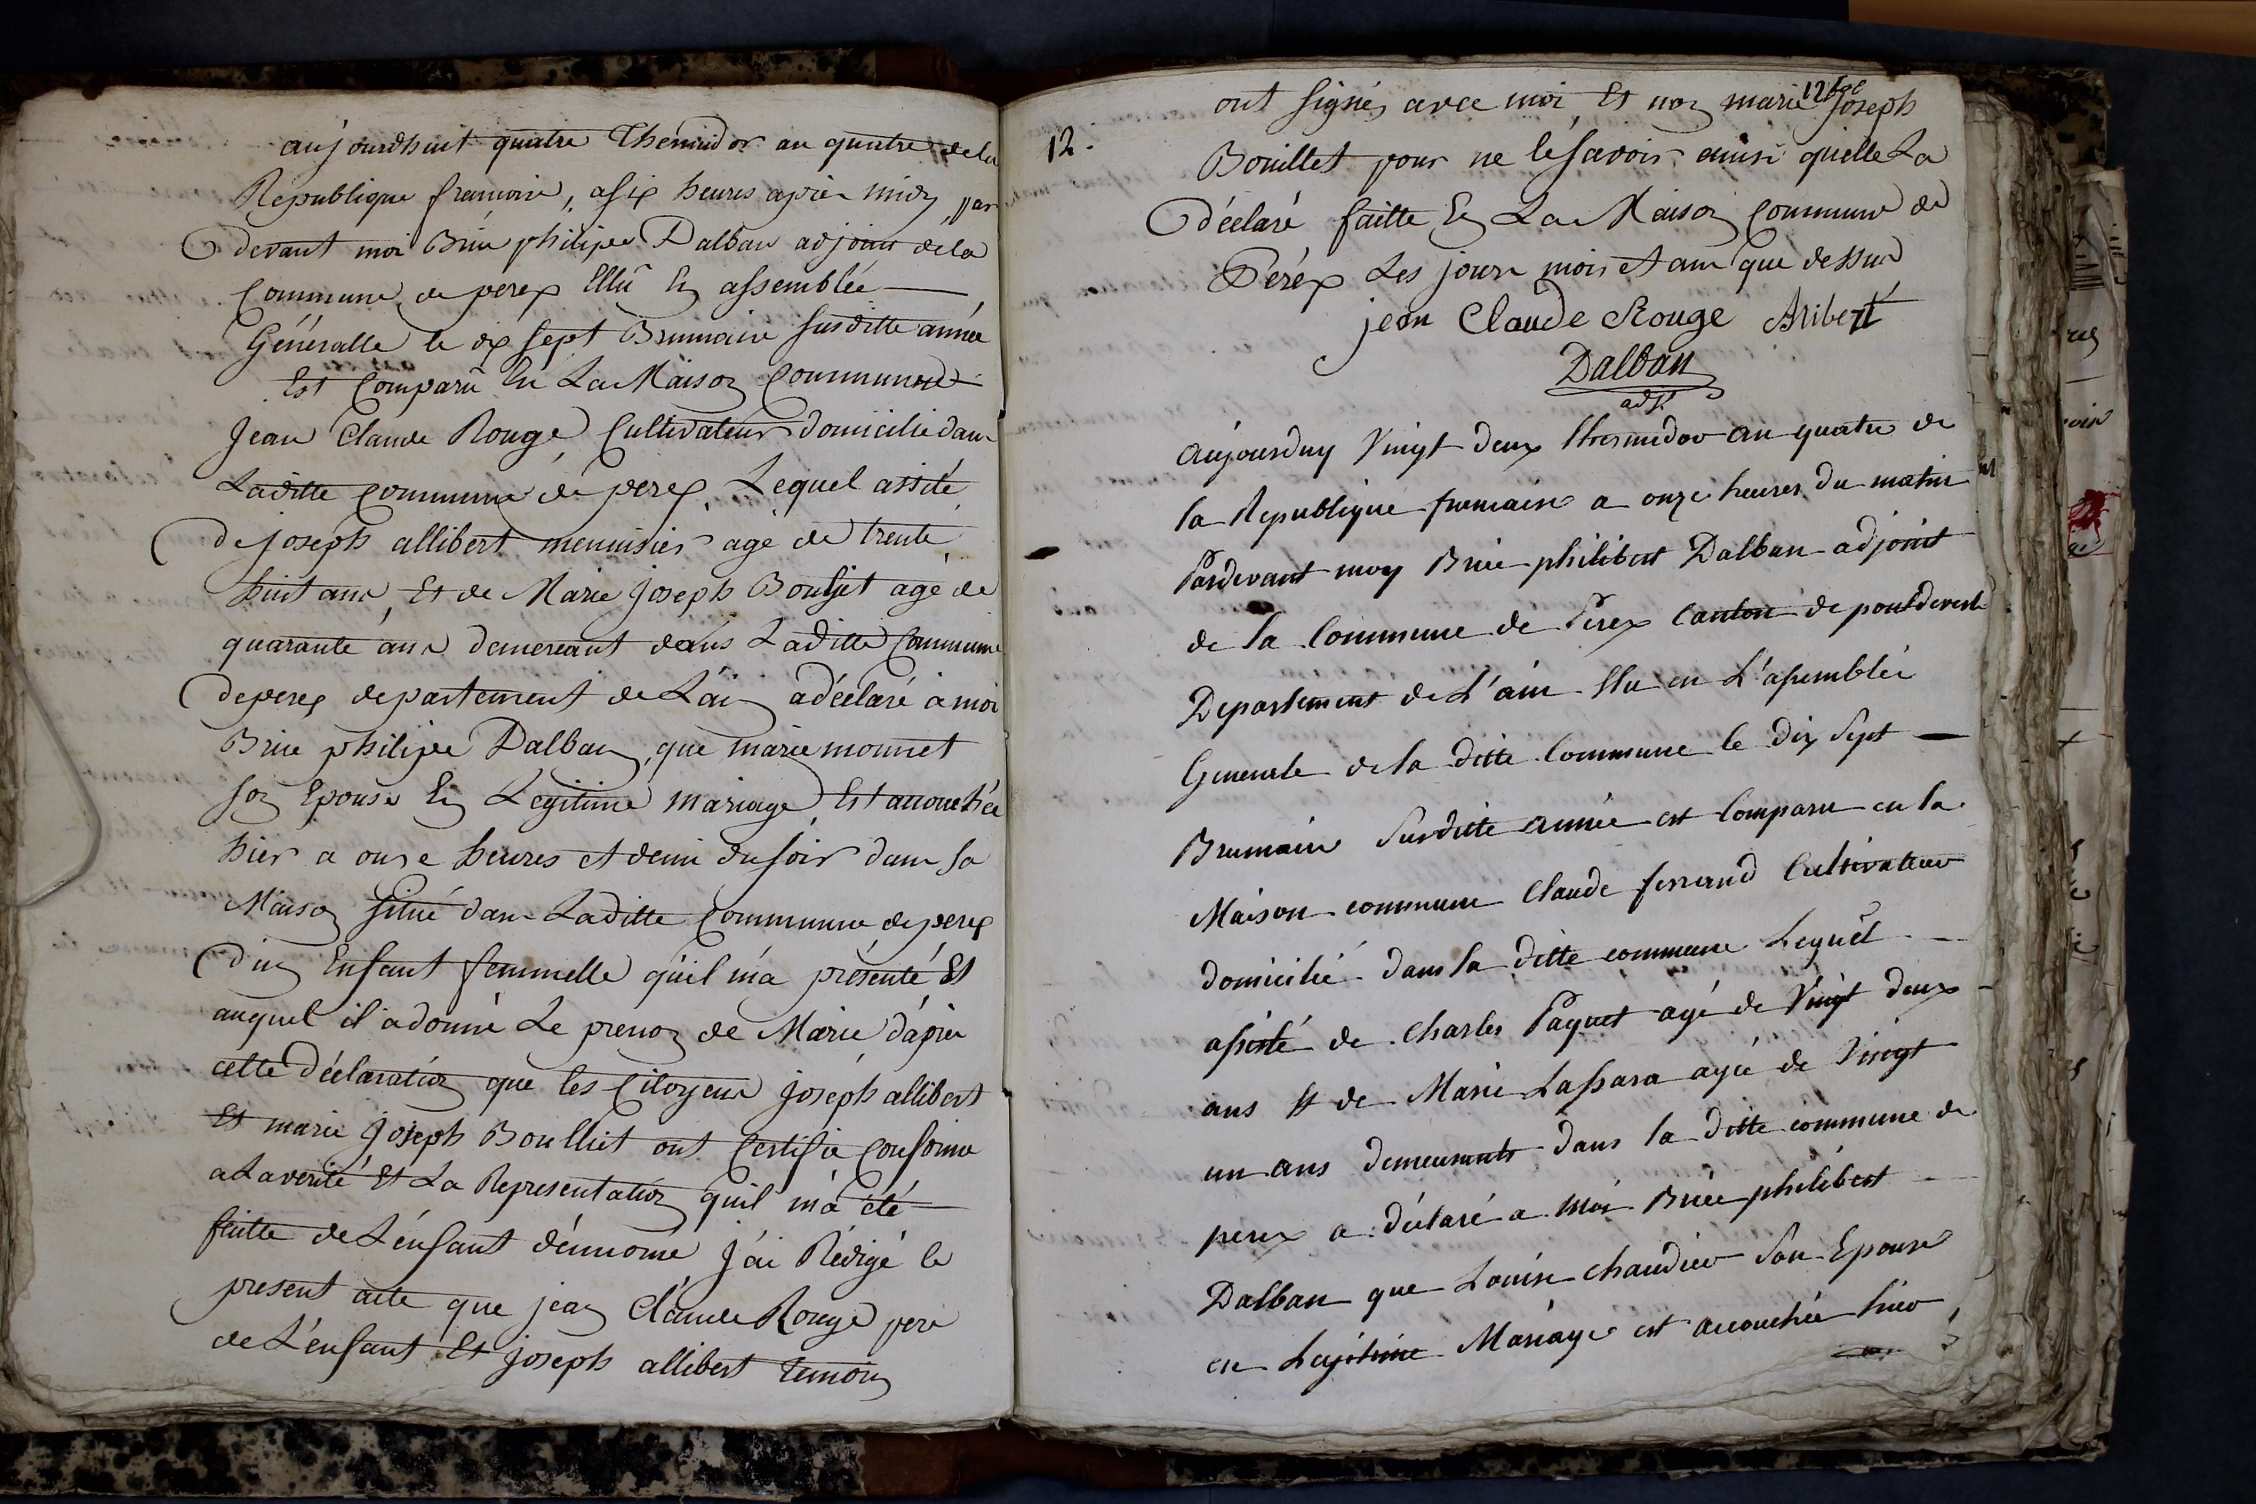 aujourdhuit quatre Thermidor an quatre dela
Republique francoise, asix heures après midy, par
devant moi Brice philipe Dalban adjoint dela
Commune de perex Ellû En assemblée
Généralle le dix sept Brumaire susditte année
Est Comparû En La Maison Commune
Jean Claude Rouge, Cultivateur domicilié dans
Laditte Commune de perex, Lequel assité
de joseph allibert menuisier agé de trente
huit ans, Et de Marie joseph Boulliet agé de
quarante ans demereant dans Laditte Commune
de perex departement de L'ain a déclaré à moi
Brice philipe Dalban, que marie monnet
son Epouse En Legitime mariage, Est accouchée
hier a onze heures et demi du soir dans sa
Maison situé dans Laditte Commune de perex
d'un Enfant femmelle qu'il m'a présenté Et
auquel il a donné Le prenon de Marie d'après
cette déclaration que les Citoyens joseph allibert
Et marie joseph Boulliet ont Certifié Conforme
a La verité Et La Representation quil m'a été
faitte de L'enfant dénnomé J'ai Rédigé le
present acte que jean Claude Rouge pere
de L'enfant Et joseph allibert temoin
12
ont signés avec moi, Et non marie joseph
12.
Bouillet pour ne le savoir ainsi qu'elle La
déclaré faitte En La Maison Commune de
Péréx Les jours mois et an que dessus
jean Claude Rouge Aribert
Dalban
adjt
aujourduy Vingt deux thermidor an quatre de
la Republique francaise a onze heures du matin
Pardevant moy Brice philibert Dalban adjoint
de la Commune de Perex Canton de pontdevesle
Departement de L'ain Elu en L'assemblée
Generale de la ditte Commune le dix Sept
Brumaire Susditte année est Comparu en la
Maison commune Claude ferrand Cultivateur
domicilié dans la ditte commune Lequel
assisté de Charles Paquet agé de Vingt deux
ans Et de Marie Lassara agée de Vingt
un ans demeurants dans la ditte commune de
perex a déclaré a moi Brice philibert
Dalban que Louise chaudier Son Epouse
en Legitime Mariage est accouchée hier